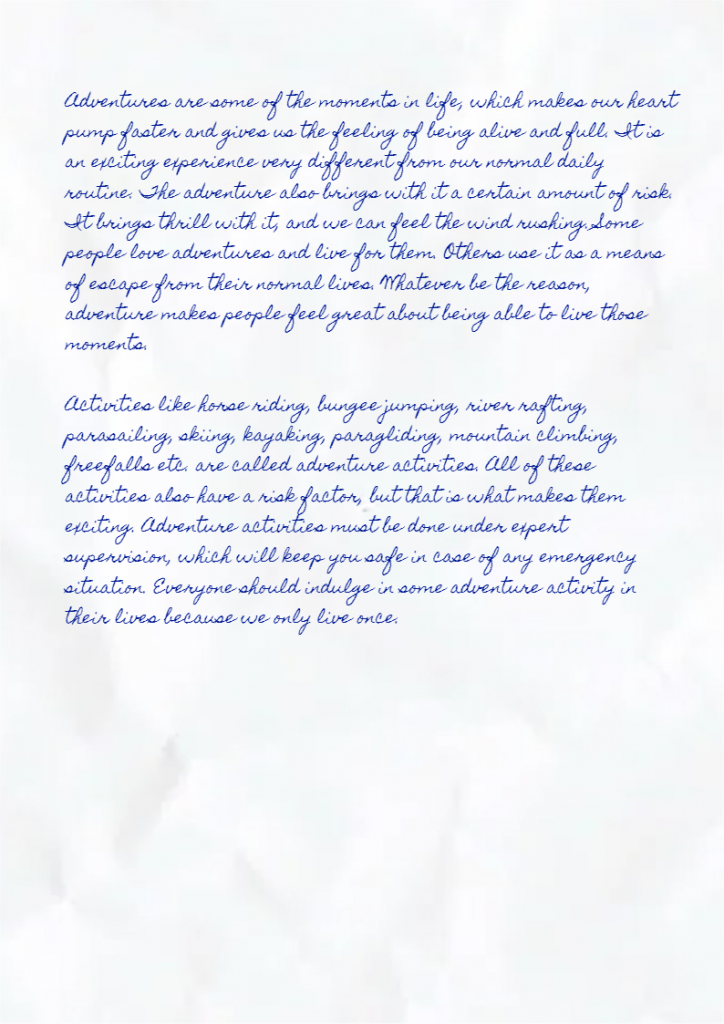 Adventures are some of the moments in life, which makes our heart
pump faster and gives us the feeling of being alive and full. It is
an exciting experience very different from our normal daily
routine. The adventure also brings with it a certain amount of risk.
It brings thrill with it, and we can feel the wind rushing. Some
people love adventures and live for them. Others use it as a means
of escape from their normal lives. Whatever be the reason,
adventure makes people feel great about being able to live those
moments.

Activities like horse riding, bungee jumping, river rafting,
parasailing, skiing, kayaking, paragliding, mountain climbing,
freefalls etc. are called adventure activities. All of these
activities also have a risk factor, but that is what makes them
exciting. Adventure activities must be done under expert
supervision, which will keep you safe in case of any emergency
situation. Everyone should indulge in some adventure activity in
their lives because we only live once.